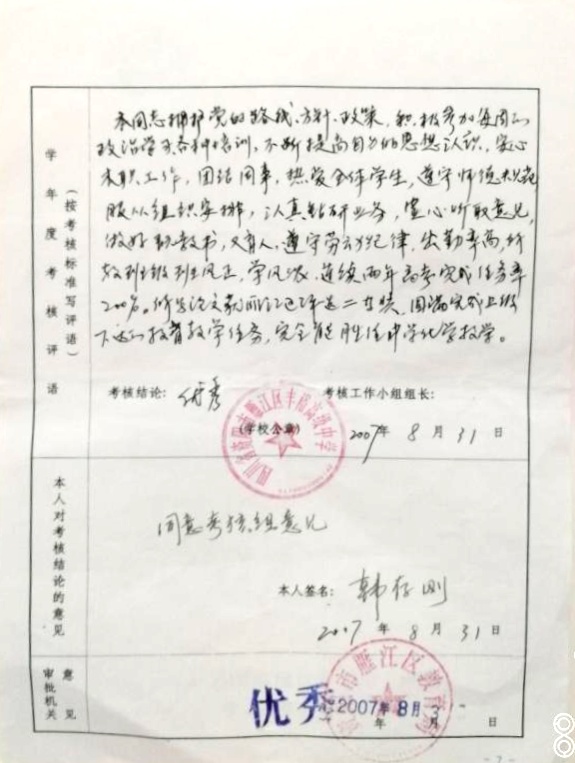 学年度考核评语
（按考核标准写评语）
本同志拥护党的路线、方针、政策，积极参加每周的
政治学习各种培训，不断提高自己的思想认识，安心
本职工作，团结同事，热爱全体学生，遵守师德规范
服从组织安排，认真钻研业务，虚心听取意见，
做好既教书，又育人，遵守劳动纪律，出勤率高，所
教班级班风正，学风浓，连续两年高考完成任务率
200%。所写论文获 二等奖，圆满完成上级
下达的教育教学任务，完全能胜任中学化学教学。
考核结论：优秀
考核工作小组组长：
（学校公章）
2007年8月31日
四川省资阳市雁江区丰裕高级中学
本人对考核结论的意见
同意考核组意见
本人签名：韩存刚
2007年8月31日
审批机关意见
市雁江区教育局
优秀
2007年8月3
年 月 日